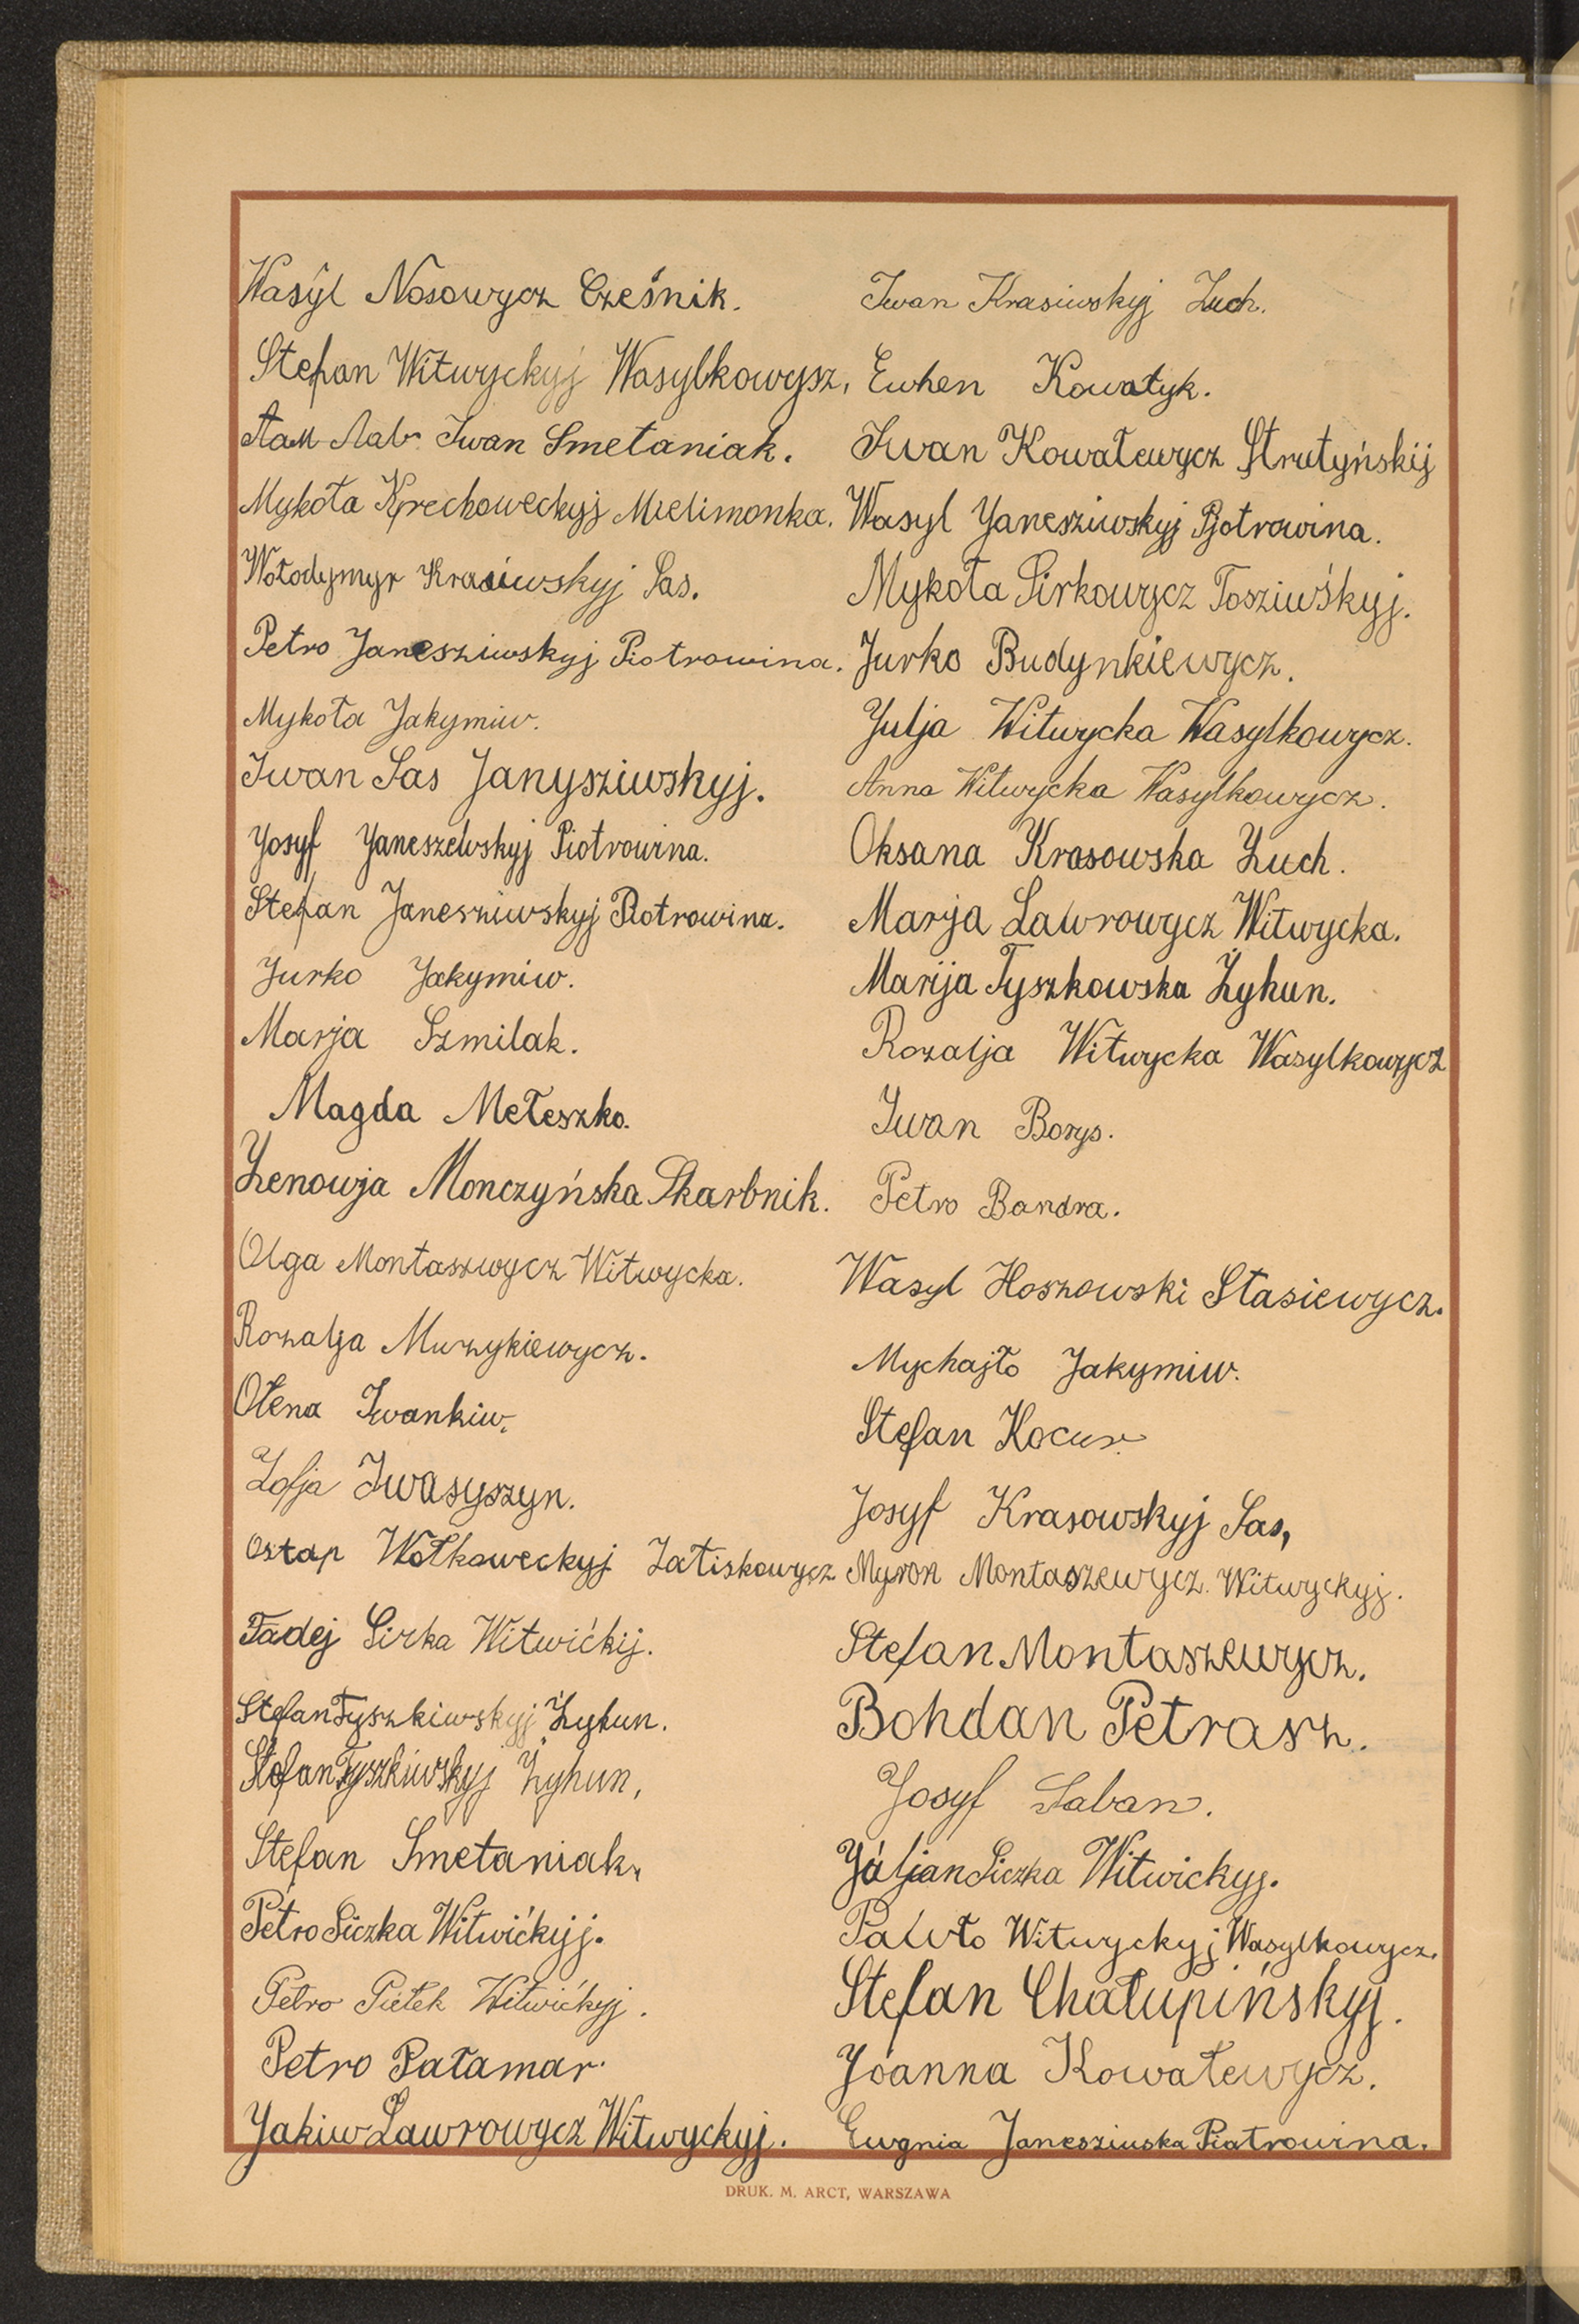 Wasyl Nosowycz Cześnik.
Stefan Witwyckyj Wasylkowysz,
Iwan Smetaniak.
Mykoła Krechoweckyj Mielimonka.
Wołodymyr Krasiwskyj Sas.
Petro Janesziwskyj Piotrowina.
Mykoła Jakymiw.
Iwan Sas Janysziwskyj.
Josyf Janeszewskyj Piotrowina.
Stefan Janesziwskyj Piotrowina.
Jurko Jakymiw.
Marja Szmilak.
Magda Mełeszko.
Zenowja Monczyńska Skarbnik.
Olga Montaszwycz Witwycka.
Rozalja Muzykiewycz.
Ołena Iwankiw.
Zofja Iwasyszyn.
Ostap Wołkoweckyj Załiskowycz
Tadej Sirka Witwićkij.
Stefan Tyszkiwskyj Żyhun.
Stefan Tyszkiwskyj Żyhun,
Stefan Smetaniak,
Petro Siczka Witwićkyj.
Petro Pietek Witwićkyj.
Petro Pałamar.
Jakiw Lawrowycz Witwyckyj.
Iwan Krasiwskyj Zuch.
Ewhen Kowałyk.
Iwan Kowałewycz Strutyńskij
Wasyl Janesziwskyj Pjotrowina.
Mykoła Sirkowycz Tosziwśkyj.
Jurko Budynkiewycz.
Julja Witwycka Wasylkowycz.
Anna Witwycka Wasylkowycz.
Oksana Krasowska Zuch.
Marja Lawrowycz Witwycka.
Marija Tyszkowska Żyhun.
Rozalja Witwycka Wasylkowycz
Iwan Borys.
Petro Bandra.
Wasyl Hoszowski Stasiewycz.
Mychajło Jakymiw.
Stefan Kocur.
Josyf Krasowskyj Sas,
Myron Montaszewycz Witwyckyj.
Stefan Montaszewycz.
Bohdan Petrasz.
Josyf Saban.
Juljan Siczka Witwickyj.
Pawło Witwyckyj Wasylkowycz.
Stefan Chałupińskyj.
Joanna Kowałewycz.
Ewgnia Janesziwska Piatrowina.
DRUK. M. ARCT, WARSZAWA